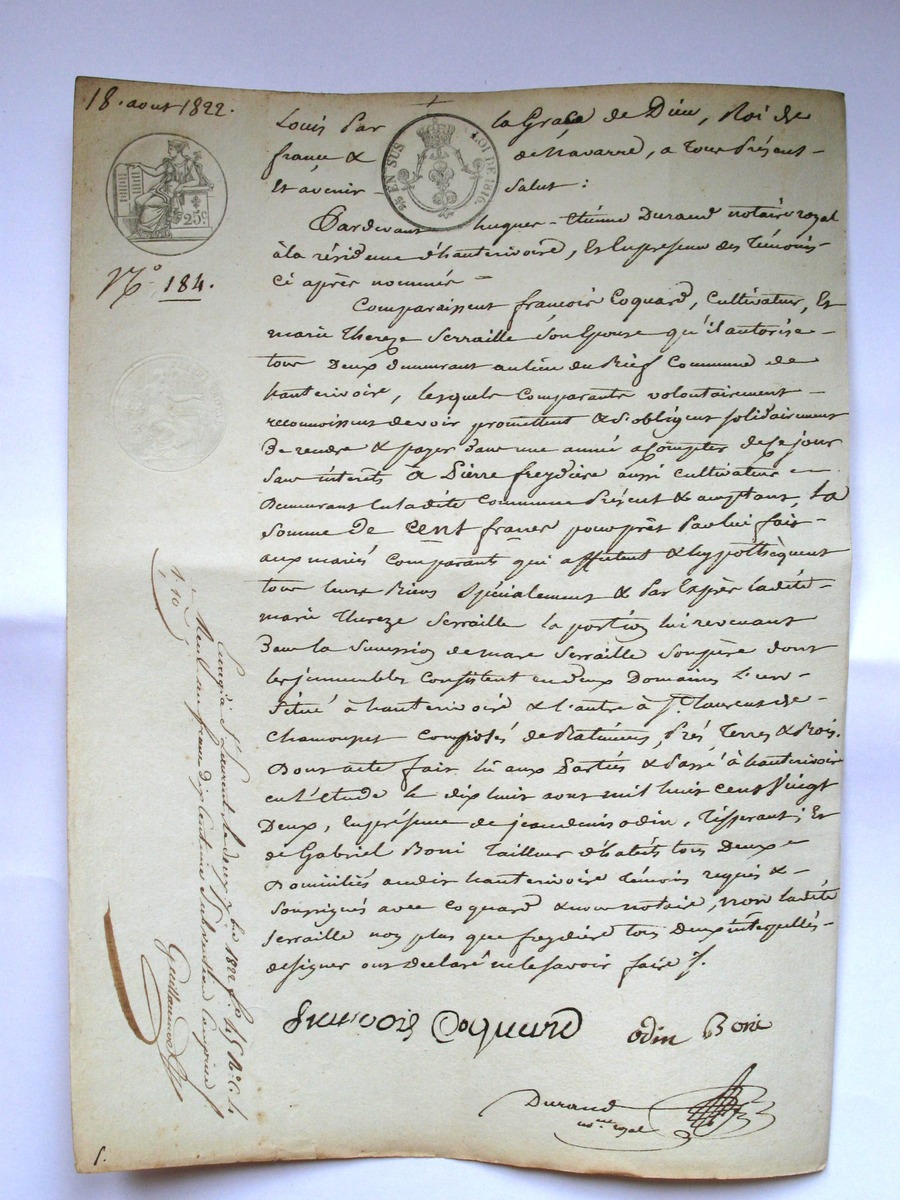 18. aout 1822.
Louis Par la Grace de Dieu, Roi de
france & de Navarre, a tous Présent
Et avenir Salut :
25 EN SUS LOI DE 1816.
25c.
Pardevant hugues-Etienne Durand notaire royal
à la résidence d'hauterivoire, Et En presence des Témoins
ci après nommés
N.° 184.
Comparaissent francois Coquard, Cultivateur, Et
marie Thereze Serraille Son Epouse qu'il autorise
tous Deux demeurant au lieu du Rief Commune de
hauterivoire, lesquels Comparants volontairement
reconnoissent devoir promettent & s'obligent solidairement
De rendre & payer dans une année a Compter de ce jour
Sans intérêts à Pierre freydiere aussi cultivateur
Demeurant en ladite Commune Présent & acceptant, La
Somme de cent francs pour prêt Par lui fait
aux mariés Comparants qui affectent & hypothèquent
tous leurs Biens Spécialement & Par Exprès ladite
marie Thereze Serraille la portion lui revenant
Dans la Succession de Serraille Son père dont
les immeubles Consistent en deux Domaines L'un
Situé à hauterivoire & l'autre à St. Laurent de
Chamousset Composés de Batiments, Prés Terres & Bois.
Dont acte fait Lu aux Parties & Passé à hauterivoire
en L'étude le dix huit aout mil huit cent Vingt
Deux, En présence de jean denis odin, Tisserant ; Et
de Gabriel Boni Tailleur d'habits tous Deux
Domiciliés audit hauterivoire témoins requis &
Soussignés avec Coquard & nous notaire, non ladite
Serraille non plus que freydiere tous Deux interpellés
de signer ont déclaré ne le savoir faire /.
francois Coquard odin Boni
Durand
not. royal
1. 10
St Laurent le deux 7bre 1822 fo. 45
Reçu un franc dix centimes Subvention Comprise
Guillaumot